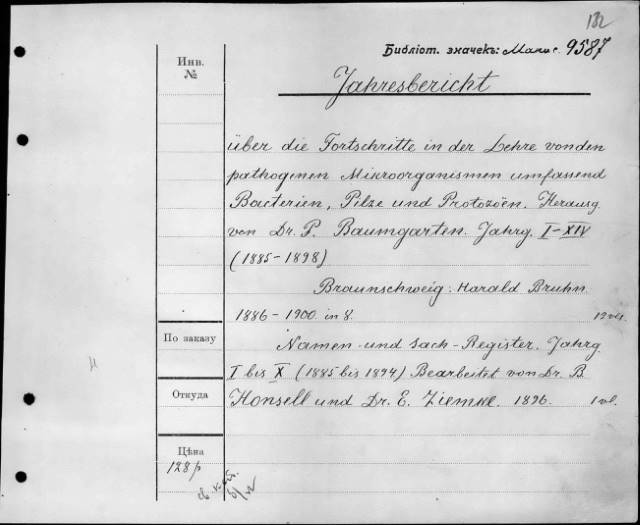 132
Библіот. значекъ: 9587
Инв.
№
Jahresbericht
über die Fortschritte in der Lehre von den
pathogenen Mikroorganismen umfassend
Bacterien, Pilze und Protozoën. Herausg.
von Dr. P. Baumgarten. Jahrg. I-XIV
(1885-1898)
Braunschweig: Harald Bruhn.
1886-1900. in 8.
Namen- und Sach-Register. Jahrg.
По заказу
I bis X (1885 bis 1894) Bearbeitet von Dr. B.
Откуда
Honsell und Dr. E. Ziemke. 1896. 1 vl.
Цѣна
128 р